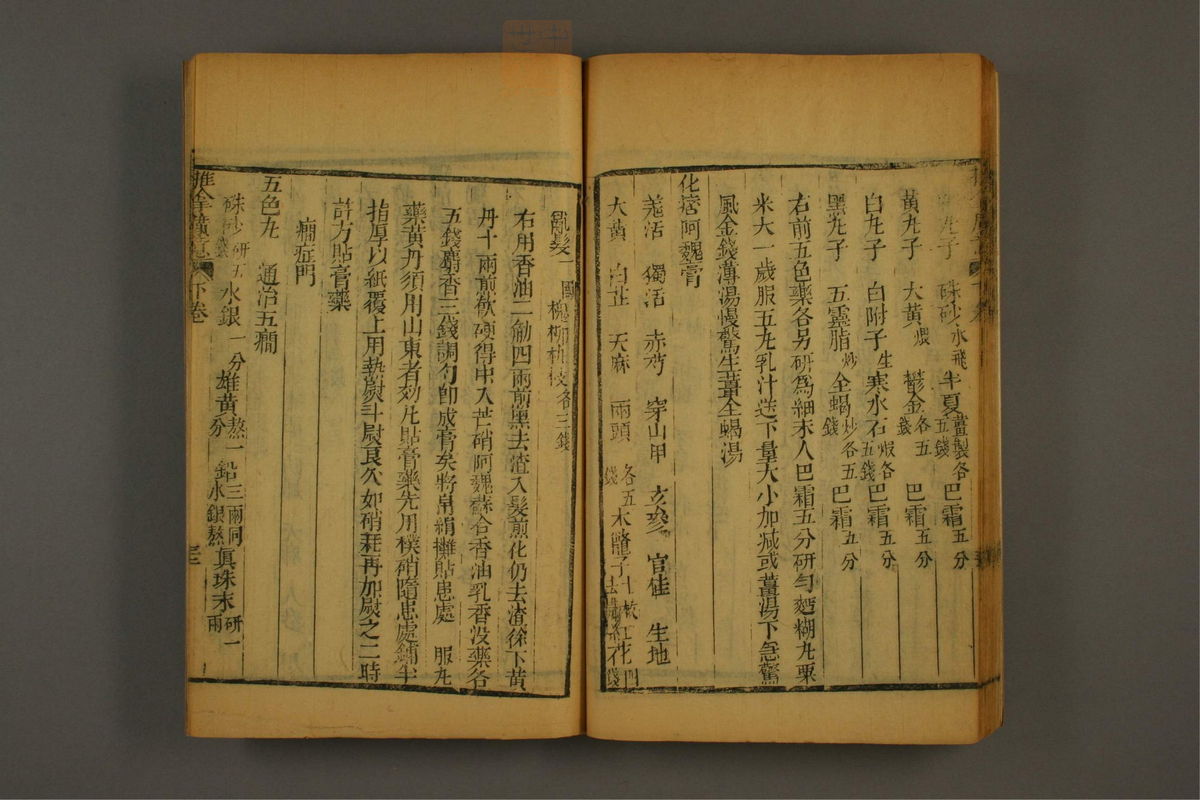 丸子 硃砂水飛 半夏薑製各五錢 巴霜五分
黃丸子 大黃煨 鬱金各五錢 巴霜五分
白丸子 白附子生 寒水石煅各五錢 巴霜五分
黑丸子 五靈脂炒 全蝎炒各五錢 巴霜五分
右前五色藥各另研為細末入巴霜五分研勻麵糊丸粟
米大一歲服五丸乳汁送下量大小加減或薑湯下急驚
風金錢薄湯慢驚生薑全蝎湯
化痞阿魏膏
羗活 獨活 赤芍 穿山甲 玄參 官桂 生地
大黃 白芷 天麻 兩頭 各五錢 木鱉子 紅花
亂髮一團 槐柳桃枝各三錢
右用香油二觔四兩煎黑去渣入髮煎化仍去渣徐下黃
丹十兩煎軟硬得中入芒硝阿魏蘇合香油乳香沒藥各
五錢麝香三錢調勻即成膏矣將帛絹攤貼患處 服丸
藥黃丹須用山東者効凡貼膏藥先用樸硝隨患處鋪半
指厚以紙覆上用熱熨斗熨良久如硝耗再加熨之二時
許方貼膏藥
癇症門
五色丸 通治五癇
硃砂研五錢 水銀一分 雄黃熬一分 鉛三兩同水銀熬 真珠末研一兩
下卷